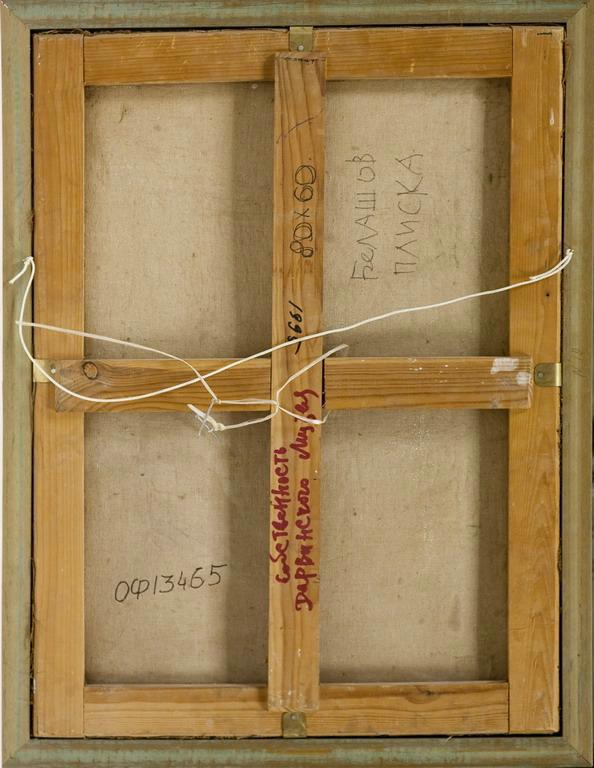 БЕЛАШОВ
ПЛИСКА
80х60
1995
собственность
Дарвинского Музея
ОФ13465